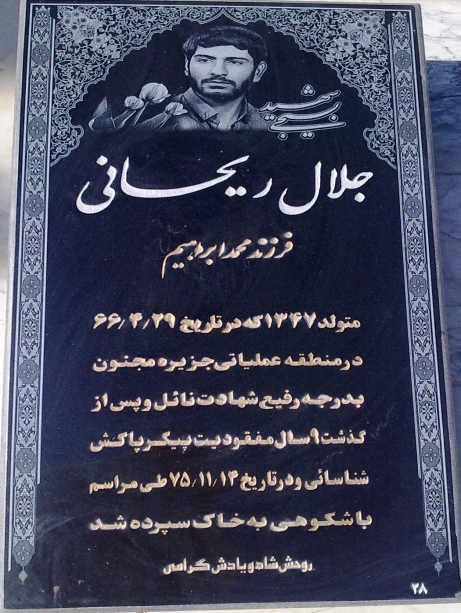 شهید بسیجی
جلال ریحانی
فرزند محمدابراهیم
متولد ۱۳۴۷ که در تاریخ ۶۶/۴/۲۹
در منطقه عملیاتی جزیره مجنون
بدرجه رفیع شهادت نائل و پس از
گذشت ۹ سال مفقودیت پیکر پاکش
شناسائی و در تاریخ ۷۵/۱۱/۱۴ طی مراسم
باشکوهی به خاک سپرده شد
روحش شاد و یادش گرامی
۲۸